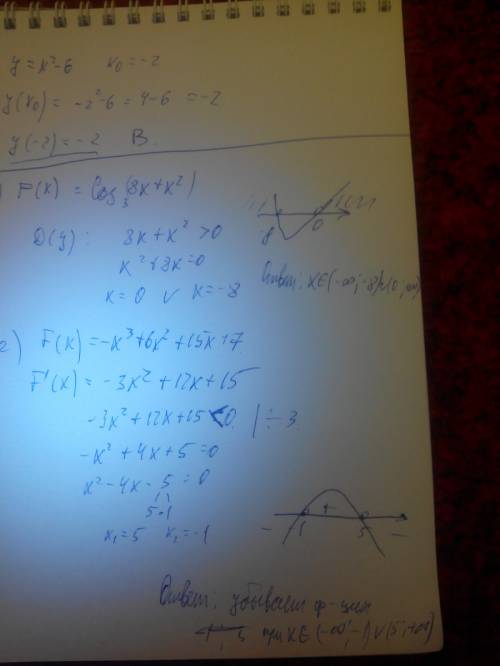 y = x²-6   x₀ = -2
y(x₀) = -2²-6 = 4-6 = -2
y(-2) = -2   В.
) F(x) = log₃(8x+x²)
D(y): 8x+x² >0
x²+8x=0
x=0 v x=-8
-8 0
Ответ: x∈(-∞;-8)∪(0;∞)
2) F(x) = -x³+6x²+15x+7
F'(x) = -3x²+12x+15
-3x²+12x+15<0 | ÷3
-x²+4x+5=0
x²-4x-5=0
x₁=5   x₂=-1
- + -
5
Ответ: убывает ф-ция
при x∈(-∞;-1)∪(5;+∞)